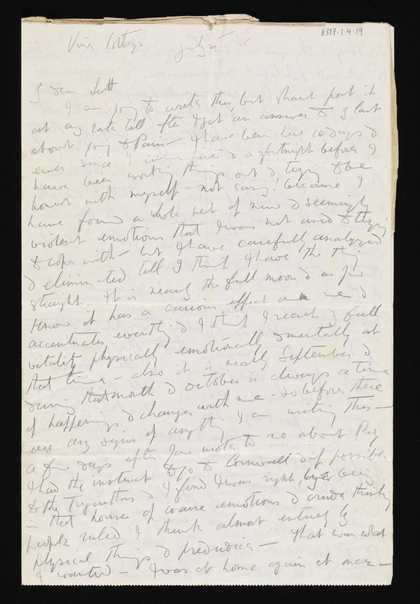 8717.1.4.19
Vine Cottage July
I am going to write this, but shant post it
at any rate till after I get an answer to
about going to Paris – I have been here
ever since I
have been working things out & trying to be
honest with myself – not easy because I
have found a whole set of new & seemingly
violent emotions that I was not used to
to cope with – but I have carefully analysed
& eliminated till I think I have the thing
straight. It is nearly the full moon & as you
know it has a curious effect on me &
accentuates everything & I think I reach full
vitality physically emotionally & mentally at
that time – also it is nearly September &
during that month & October is always a time
of happenings & changes with me – so before there
were any signs of anything I am writing this –
a few days after you wrote to me about
I had the instinct to go to Cornwall if possible
to the & I found I was right, being
in that house of coarse emotions & crude thinking
people ruled I think almost entirely by
physical things & prejudice – that was what
I wanted – I was at home again at once –